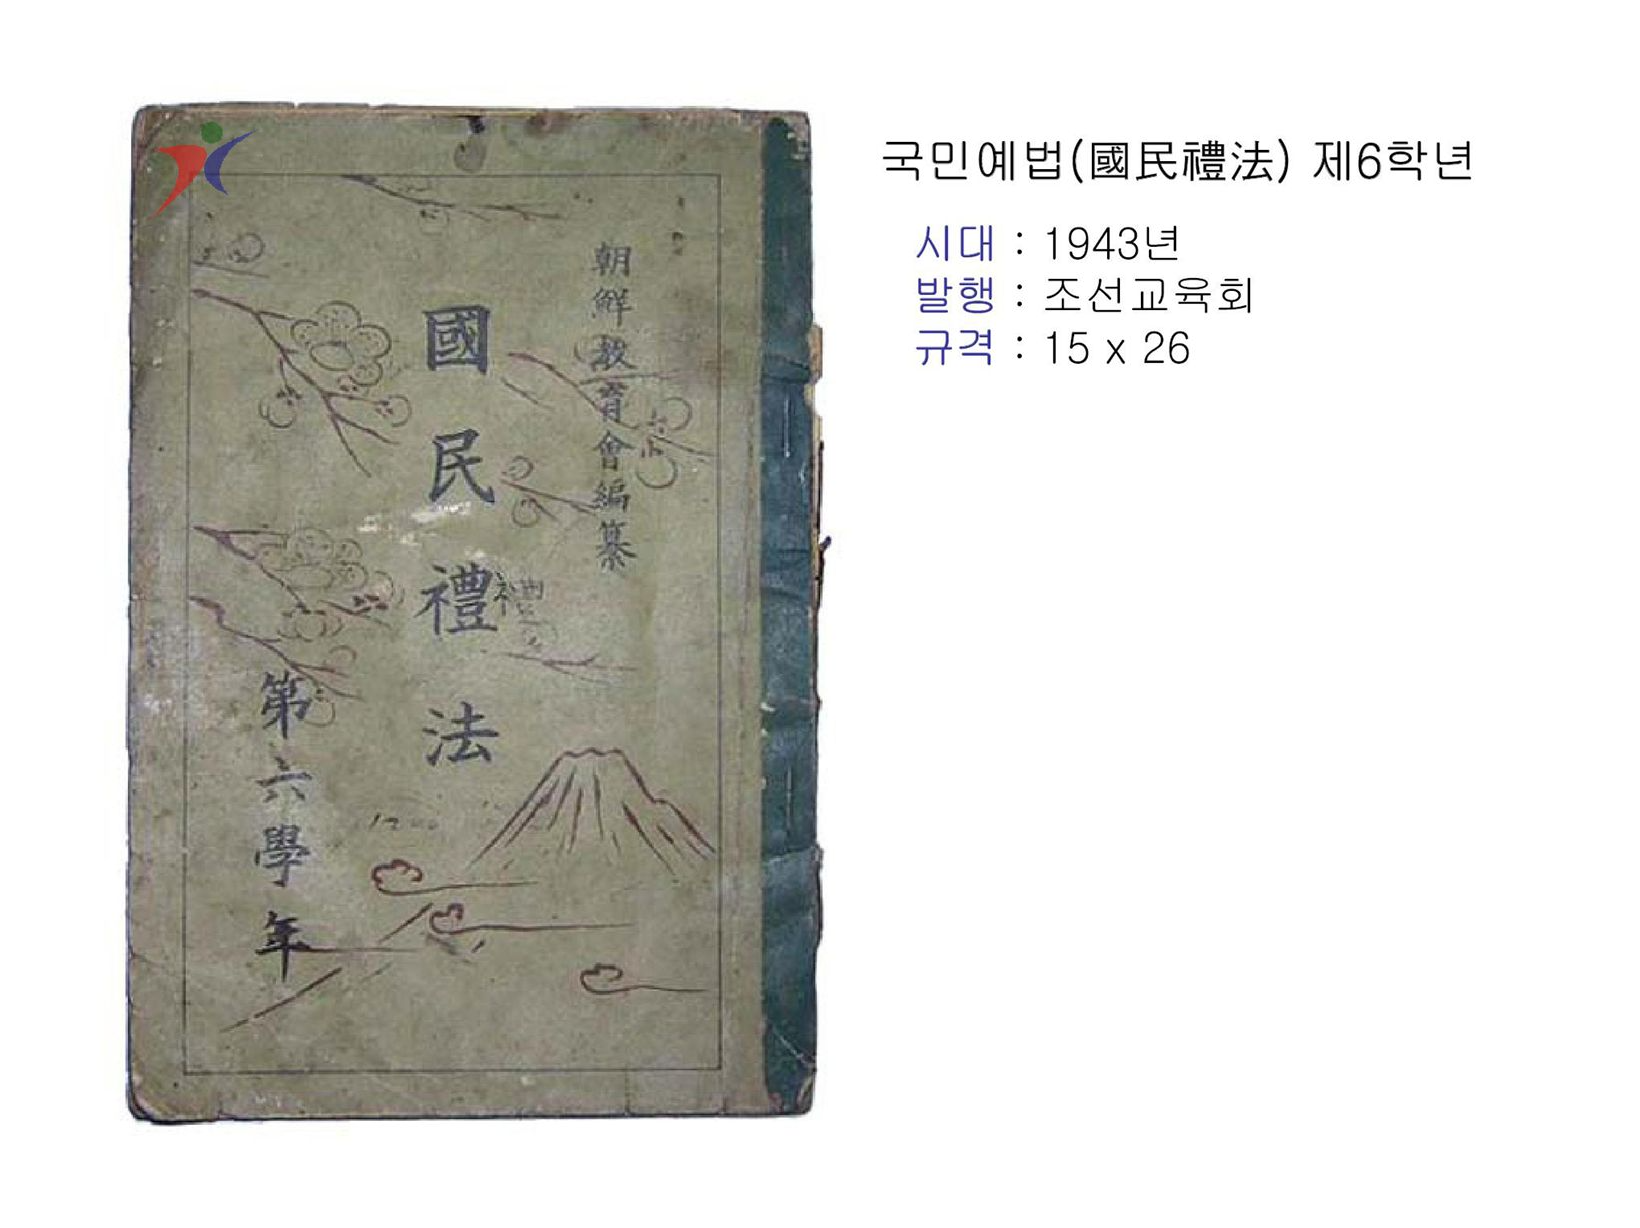 국민예법(國民禮法) 제6학년
시대 : 1943년
발행 : 조선교육회
규격 : 15 x 26
朝鮮敎育會編纂
國民禮法
禮
第六學年